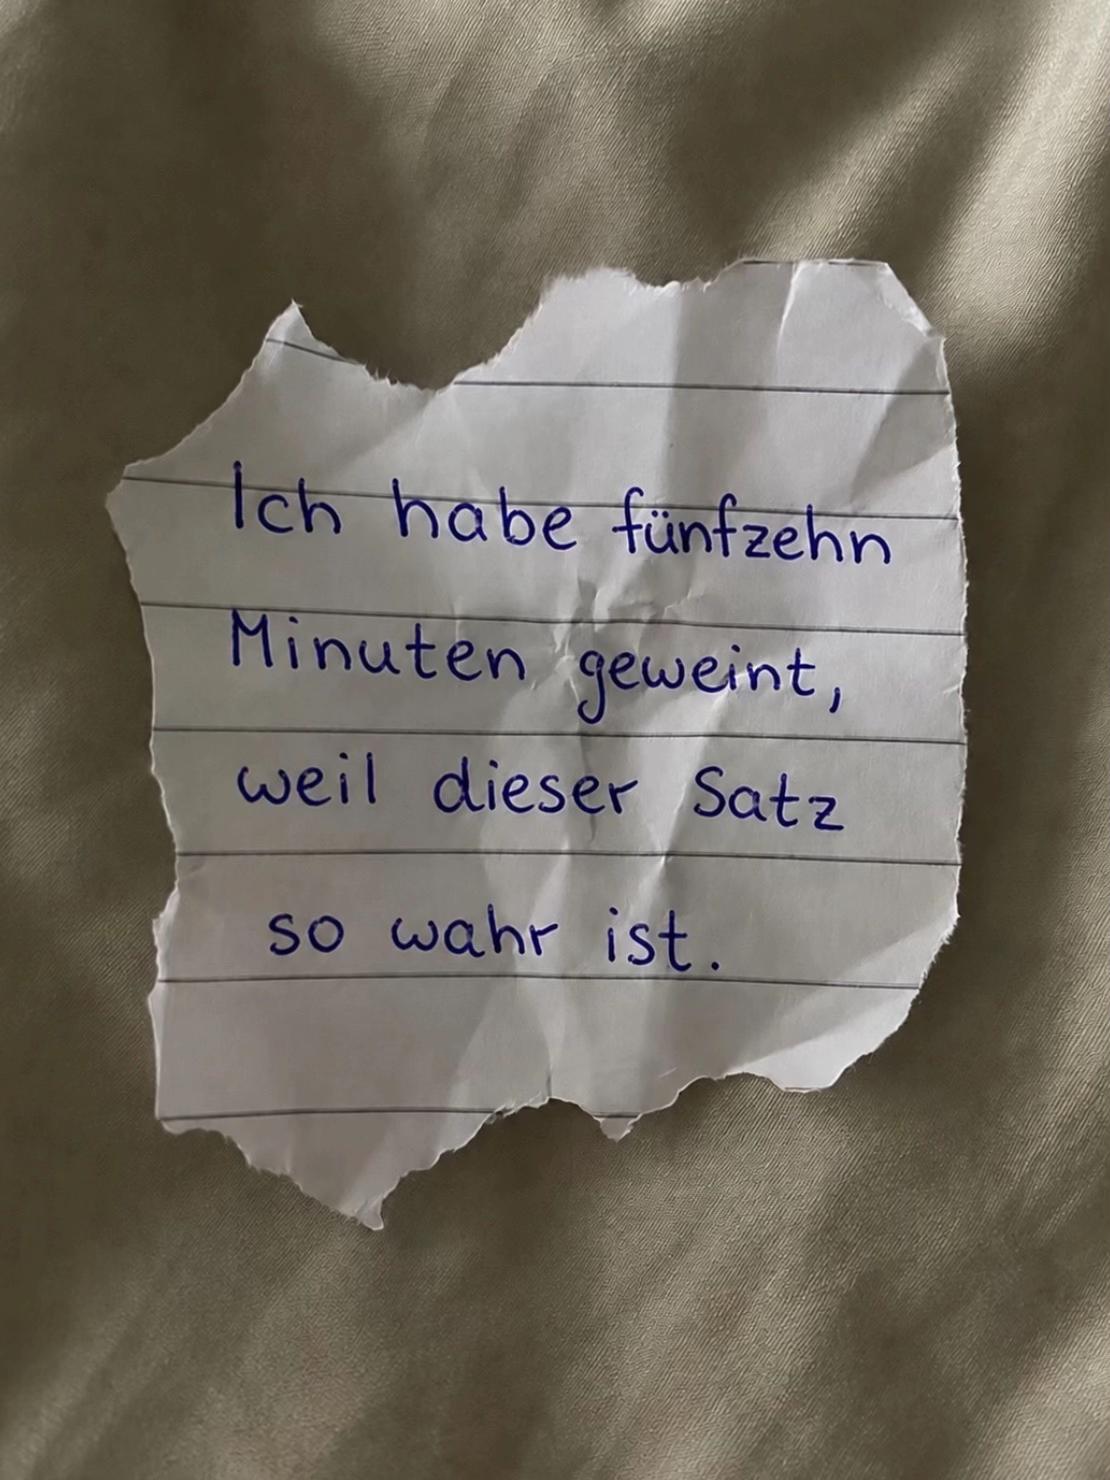 Ich habe fünfzehn
Minuten geweint,
weil dieser Satz
so wahr ist.